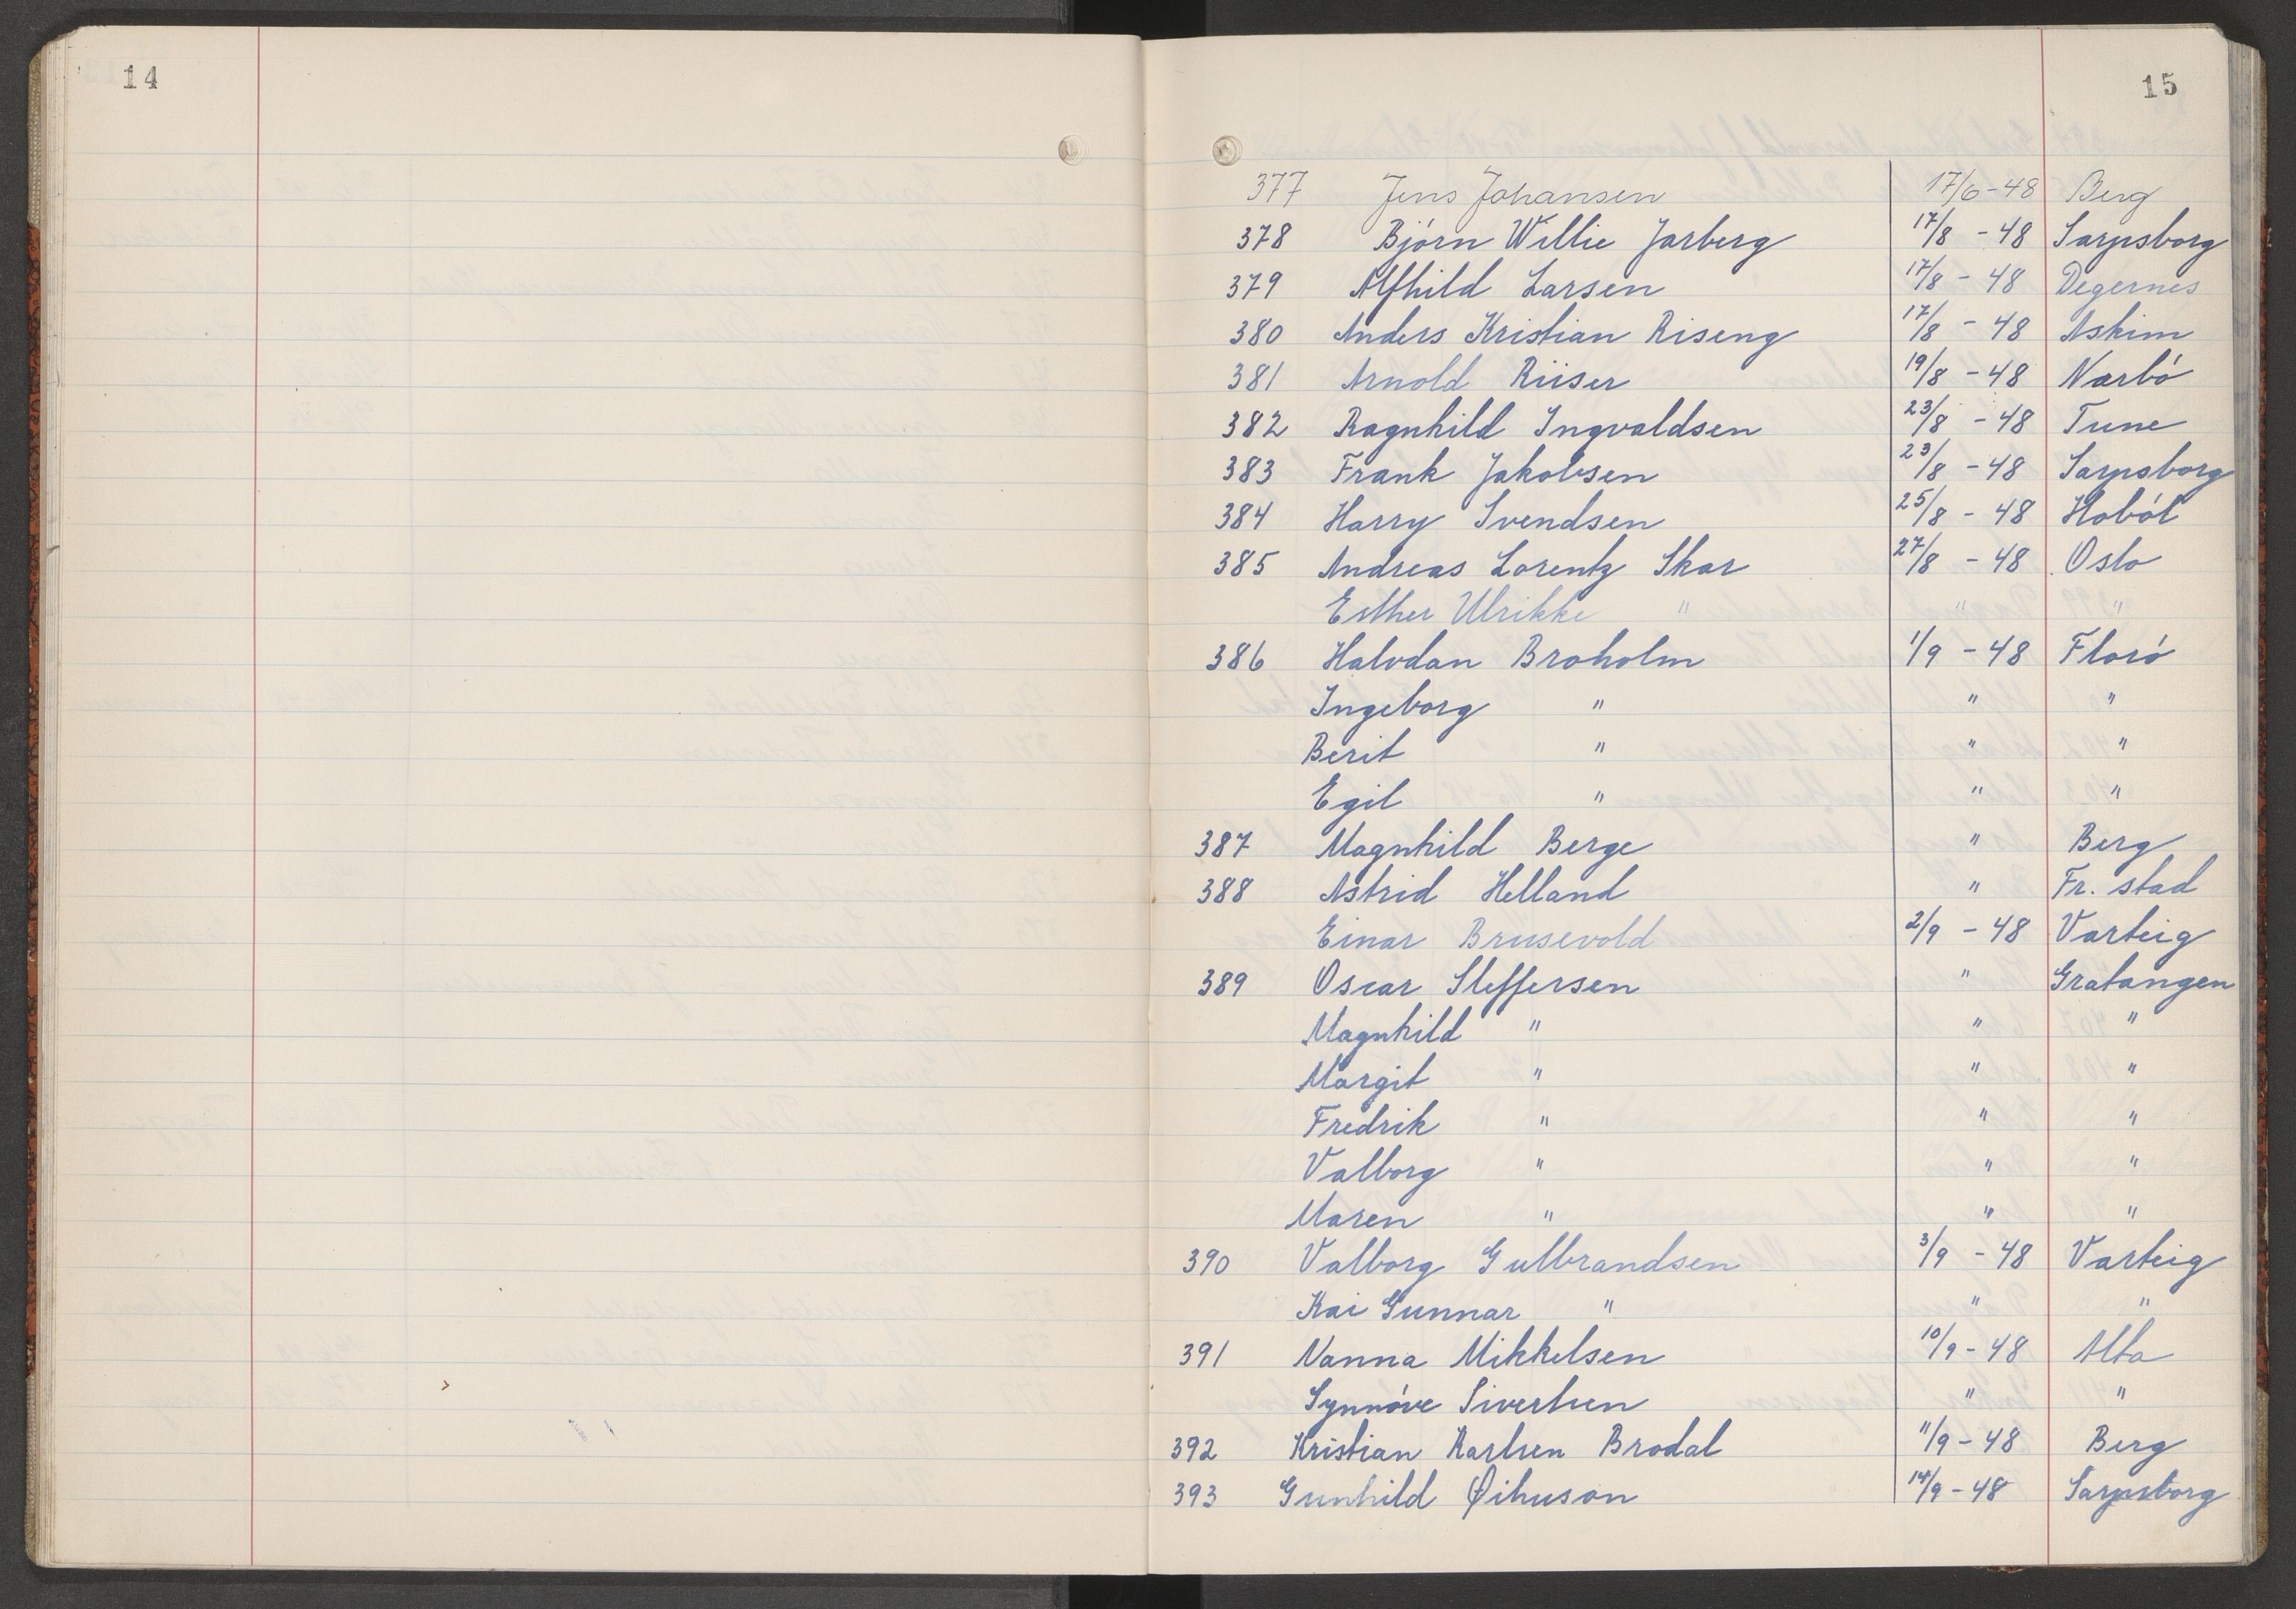 14
15
377 Jens Johansen 17/6-48 Berg
378 Bjórn Willie Jarberg 17/8 - 48 Sarpsborg
379 Alfhild Larsen 17/8 - 48 Degernes
380 Anders Kristian Riseng 17/8 - 48 Askim
381 Arnold Riiser 19/8 - 48 Narbó
382 Ragnhild Ingvaldsen 23/8 - 48 Tune
383 Frank Jakobsen 23/8 - 48 Sarpsborg
384 Harry Svendsen 25/8 - 48 Hoból
385 Andreas Lorentz Skar 27/8 - 48 Oslo
Esther Ulrikke " " "
386 Halvdan Broholm 1/9 - 48 Floró
Ingeborg " " "
Berit " " "
Egil " " "
387 Magnhild Berge " Berg
388 Astrid Helland " Fr. stad
Einar Brusevold 2/9 - 48 Varteig
389 Oscar Steffersen " Gratangen
Magnhild " " "
Margit " " "
Fredrik " " "
Valborg " " "
Maren " " "
390 Valborg Gulbrandsen 3/9 - 48 Varteig
Kai Gunnar " " "
391 Nanna Mikkelsen 10/9 - 48 Alta
Synnóve Sivertsen " "
392 Kristian Karlsen Brodal 11/9 - 48 Berg
393 Gunhild 14/9 - 48 Sarpsborg